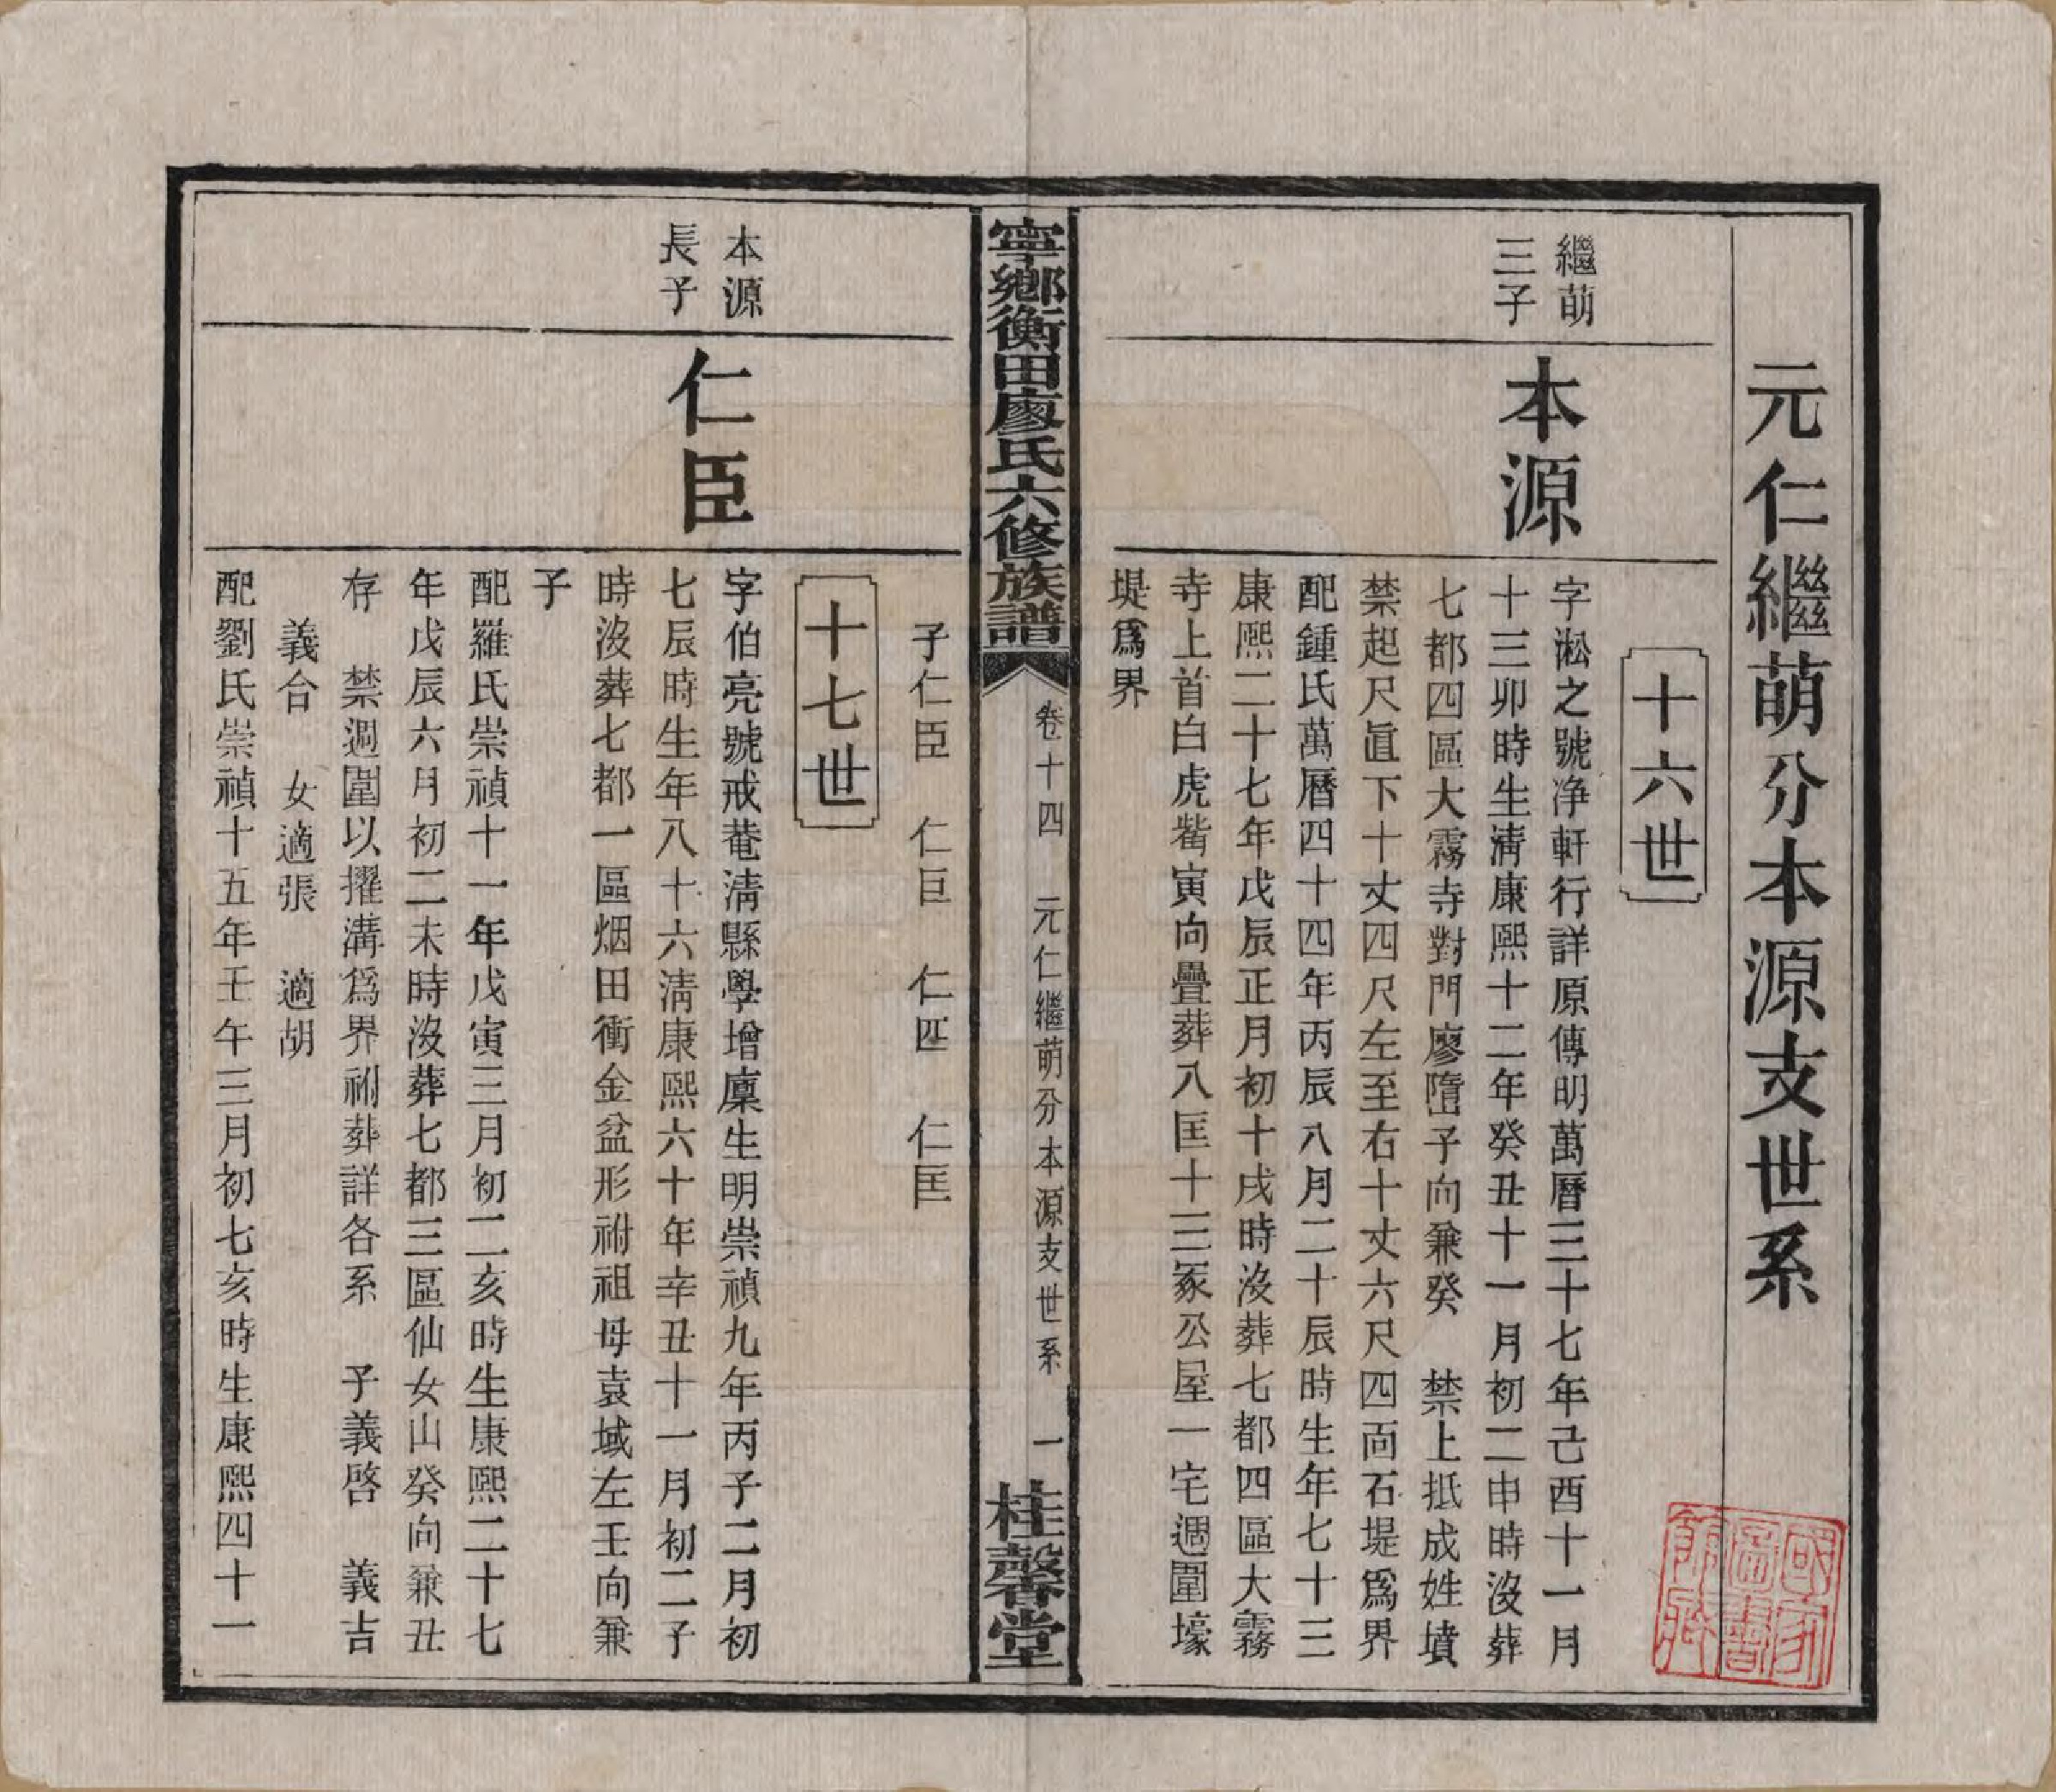 元仁繼萌分本源支世系
十六世
繼萌
三子
本源
字淞之號淨軒行詳原傳明萬曆三十七年己酉十一月
十三卯時生淸康熙十二年癸丑十一月初二申時沒葬
七都四區大霧寺對門廖嶞子向兼癸 禁上抵成姓墳
禁起尺眞下十丈四尺左至右十丈六尺四面石堤爲界
配鍾氏萬曆四十四年丙辰八月二十辰時生年七十三
康熙二十七年戊辰正月初十戌時沒葬七都四區大霧
寺上首白虎觜寅向疊葬八匡十三冢公屋一宅週圍壕
堤爲界
寧鄉衡田廖氏六修族譜
卷十四 元仁繼萌分本源支世系 一
桂馨堂
子仁臣 仁巨 仁匹 仁匡
十七世
本源
長子
仁臣
字伯亮號戒菴淸縣學增廩生明崇禎九年丙子二月初
七辰時生年八十六淸康熙六十年辛丑十一月初二子
時沒葬七都一區烟田衝金盆形祔祖母袁域左壬向兼
子
配羅氏崇禎十一年戊寅三月初二亥時生康熙二十七
年戊辰六月初二未時沒葬七都三區仙女山癸向兼丑
存 禁週圍以擢溝爲界祔葬詳各系 子義啓 義吉
義合 女適張 適胡
配劉氏崇禎十五年壬午三月初七亥時生康熙四十一
國家
圖書
館藏